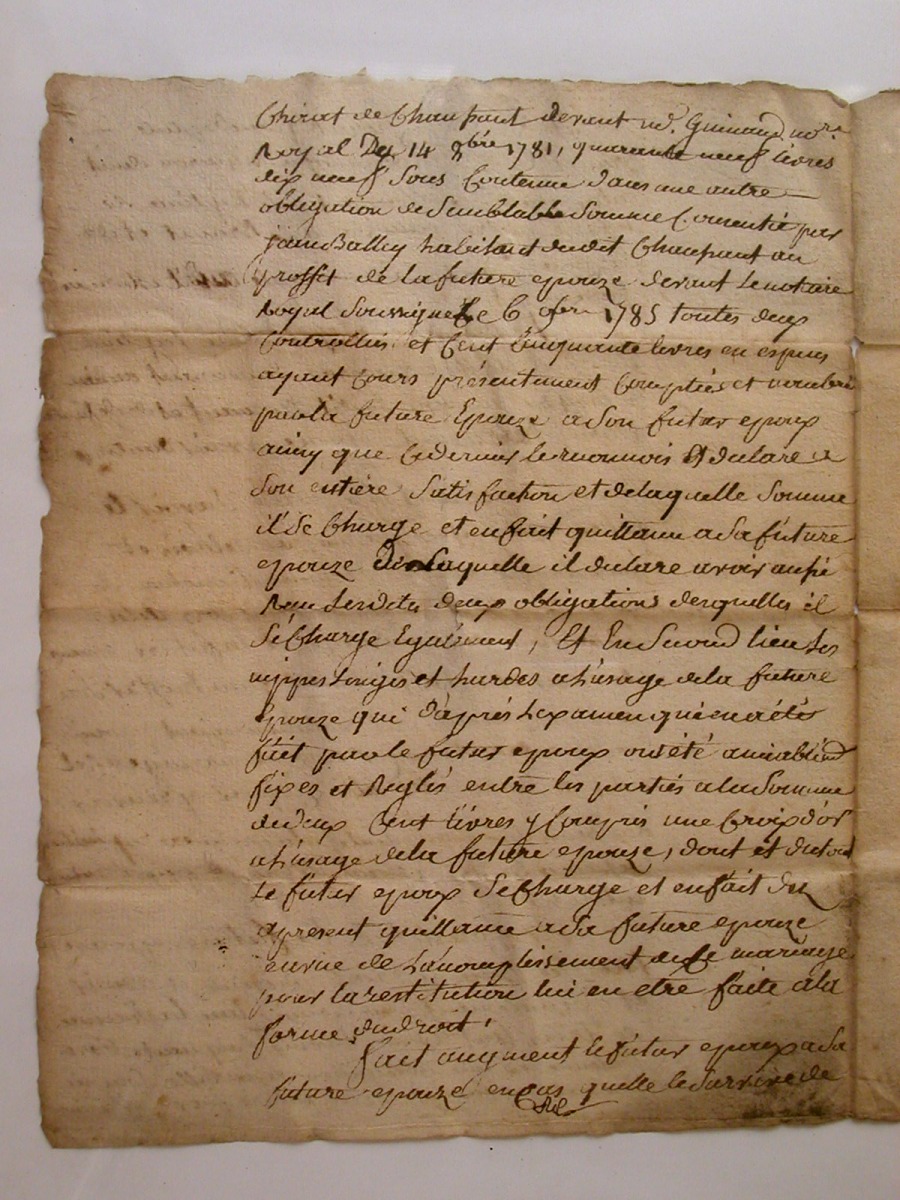 Chirat de Chaupant devant me. Guinaud nore.
Royal Du 14 8bre 1781, quarante neuf livres
dix neuf Sous Contenue dans une autre
obligation de Semblable Somme Consentie par
jean Balley habitant dudit Chaupant au
proffit de la future epouze devant le notaire
Royal Soussigné Le 6 1785 toutes deux
Controllées et Cent Cinquante livres en especes
ayant Cours présentement Comptées et nombré
par la future Epouze a Son futur epoux
ainsy que Ce dernier le reconnois et declare a
Son entière Satisfaction et de laquelle Somme
il Se Charge et en fait quittance a Sa future
epouze de Laquelle il declare avoir aussi
Reçu Lesdites deux obligations desquelles il
Se Charge Egalement, Et En Second lieu Les
nippes Linges et hardes a L'usage de la future
Epouze qui d'aprés L'examen qui en a été
fait par le futur epoux ont été amiablemt
fixes et Reglés entre les parties a la Somme
de deux Cent livres y Compris une Croix d'or
a L'usage de la future epouze, dont et du tout
Le futur epoux Se Charge et en fait dez
apresent quittance a Sa future epouze
en vue de L'accomplissement de Ce mariage
pour la restitution lui en etre faite a la
forme du droit.
fait augment le futur epoux a Sa
future epouze en Cas quelle le Survive de